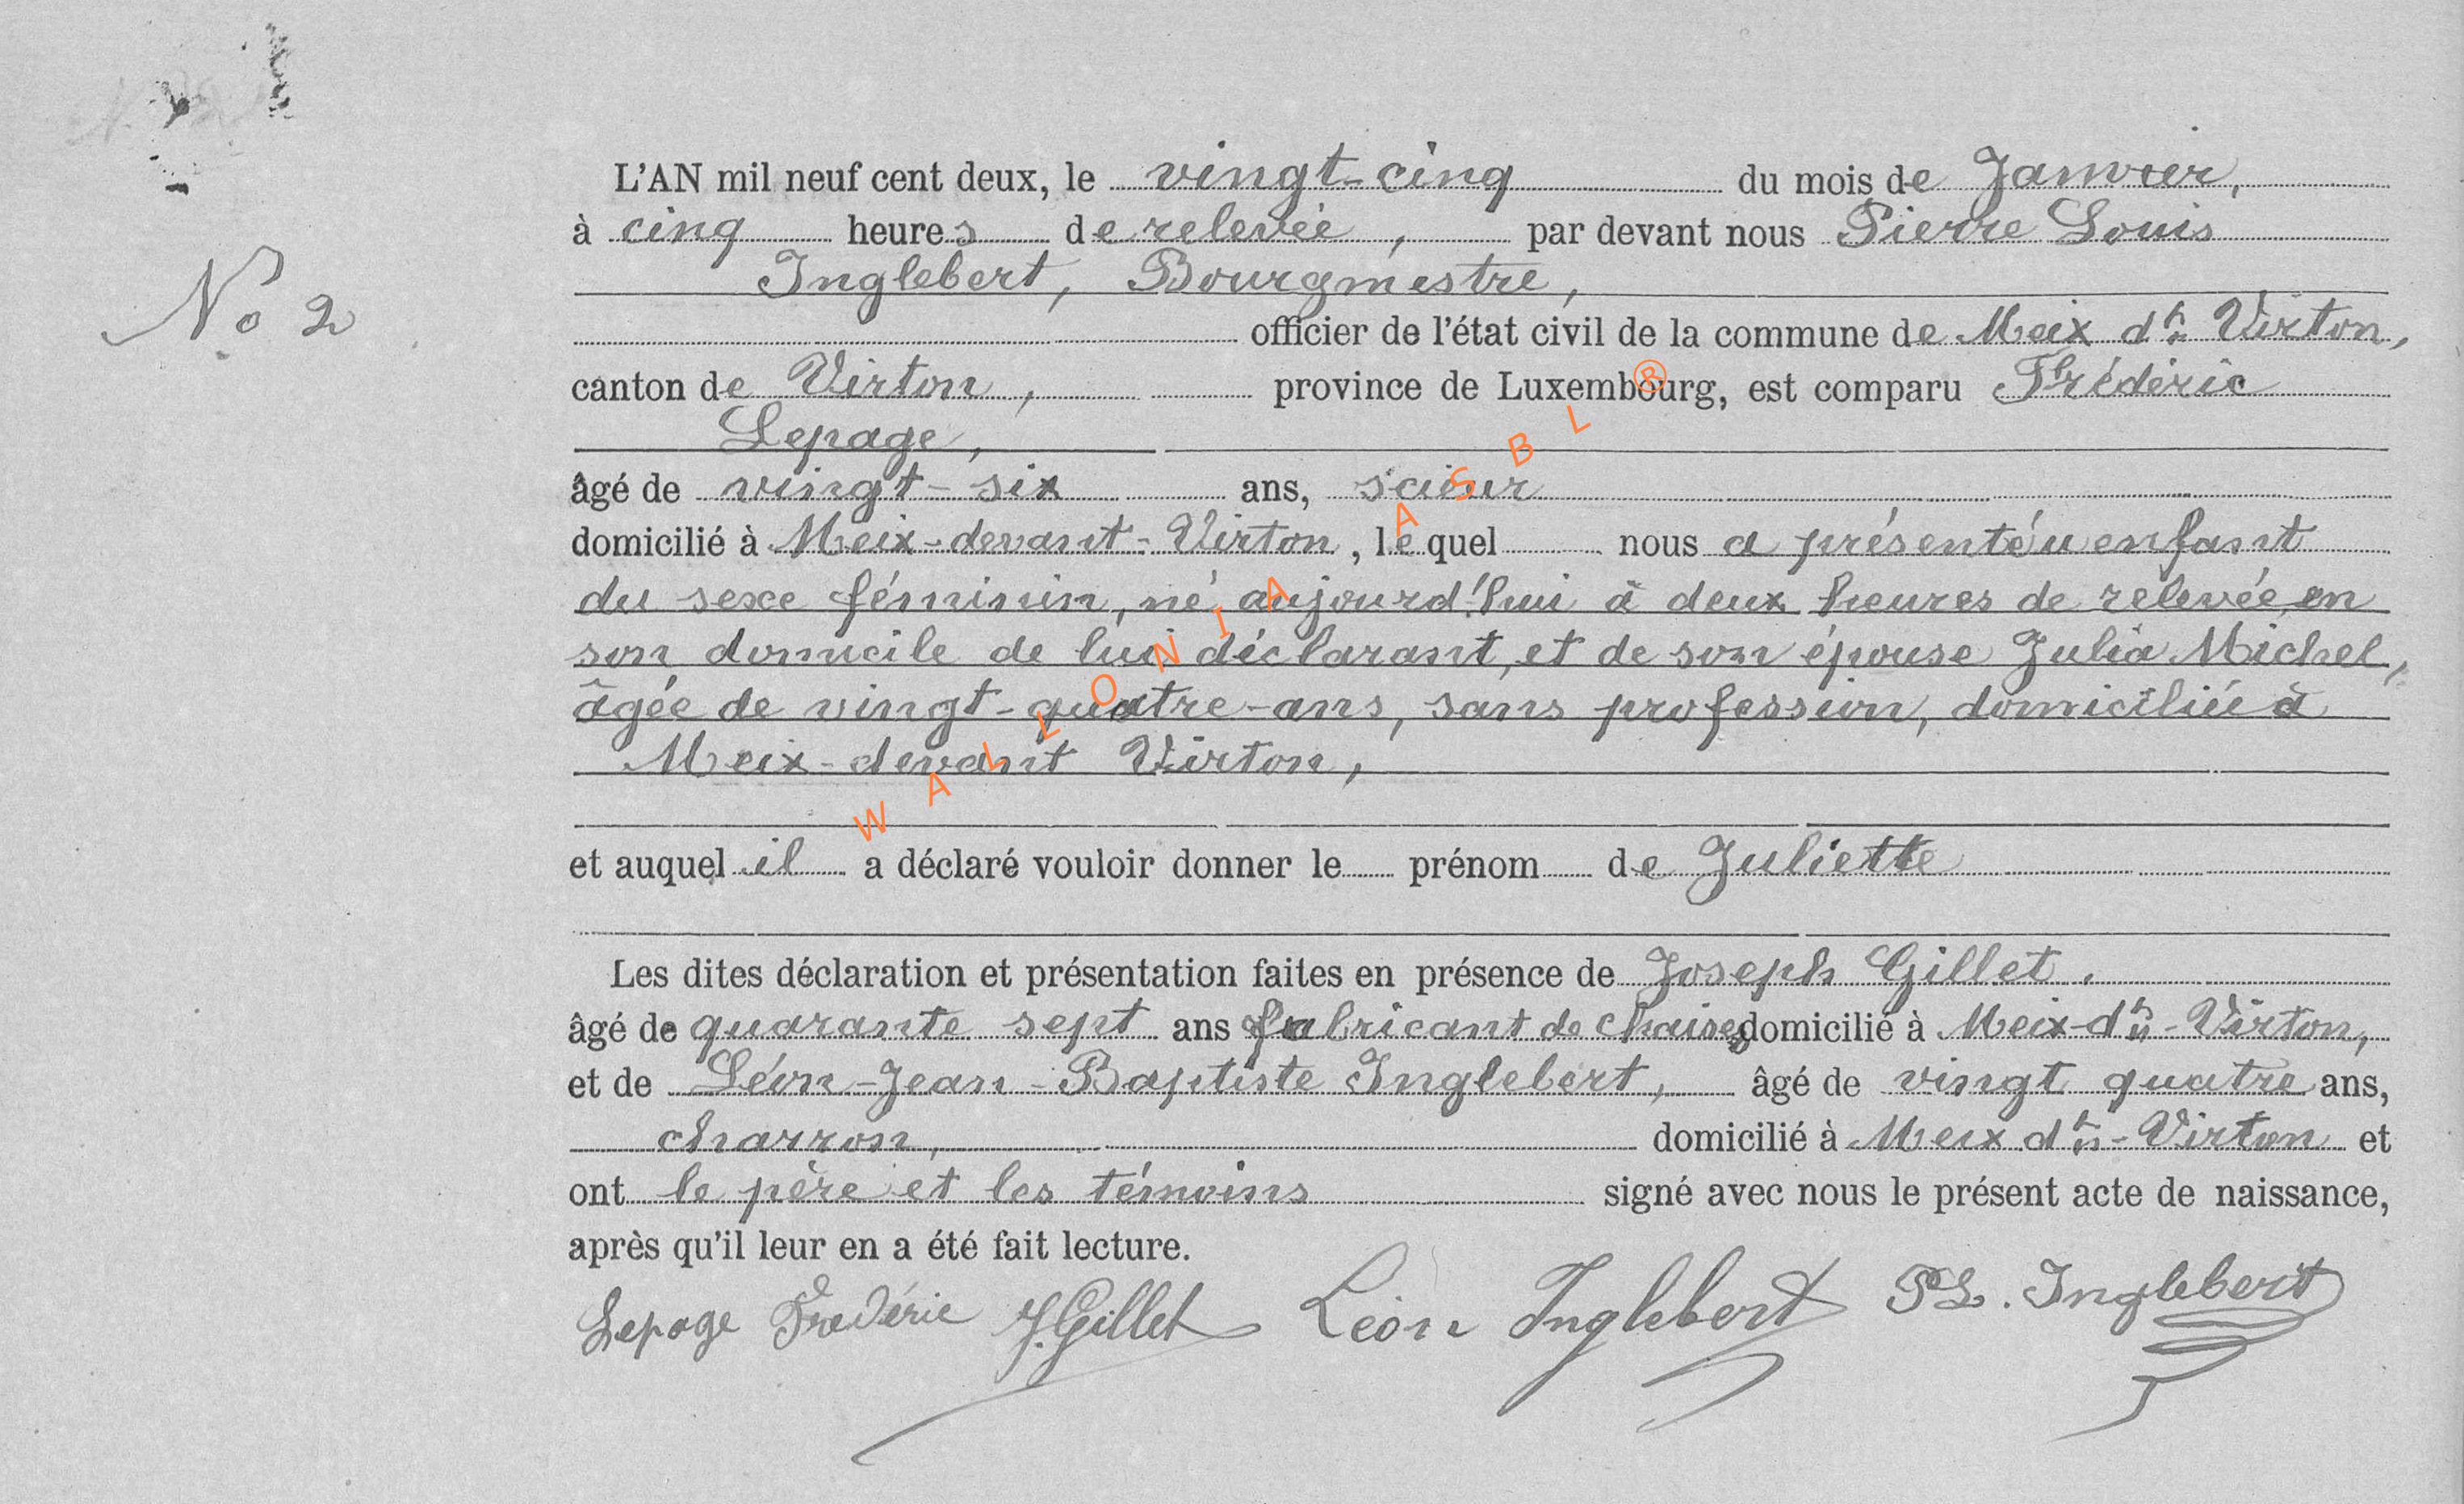 L'AN mil neuf cent deux, le vingt-cinq du mois de Janvier,
à cinq heures de relevée, par devant nous Pierre Louis
Inglebert, Bourgmestre,
No 2
officier de l'état civil de la commune de Meix dt Virton,
canton de Virton, province de Luxembourg, est comparu Frédéric
Lepage,
âgé de vingt-six ans, scieur
domicilié à Meix-devant-Virton, lequel nous a présenté u enfant
du sexe féminin, né aujourd'hui à deux heures de relevée, en
son domicile de lui déclarant, et de son épouse Julia Michel,
âgée de vingt-quatre-ans, sans profession, domiciliée à
Meix-devant Virton,
et auquel il a déclaré vouloir donner le prénom de Juliette
Les dites déclaration et présentation faites en présence de Joseph Gillet,
âgé de quarante sept ans fabricant de chaises domicilié à Meix-dt-Virton,
et de Léon-Jean-Baptiste Inglebert, âgé de vingt quatre ans,
charron, domicilié à Meix dt-Virton et
ont le père et les témoins signé avec nous le présent acte de naissance,
après qu'il leur en a été fait lecture.
Lepage Frédéric J. Gillet Léon Inglebert P L. Inglebert
WALLONIA ASBL ®